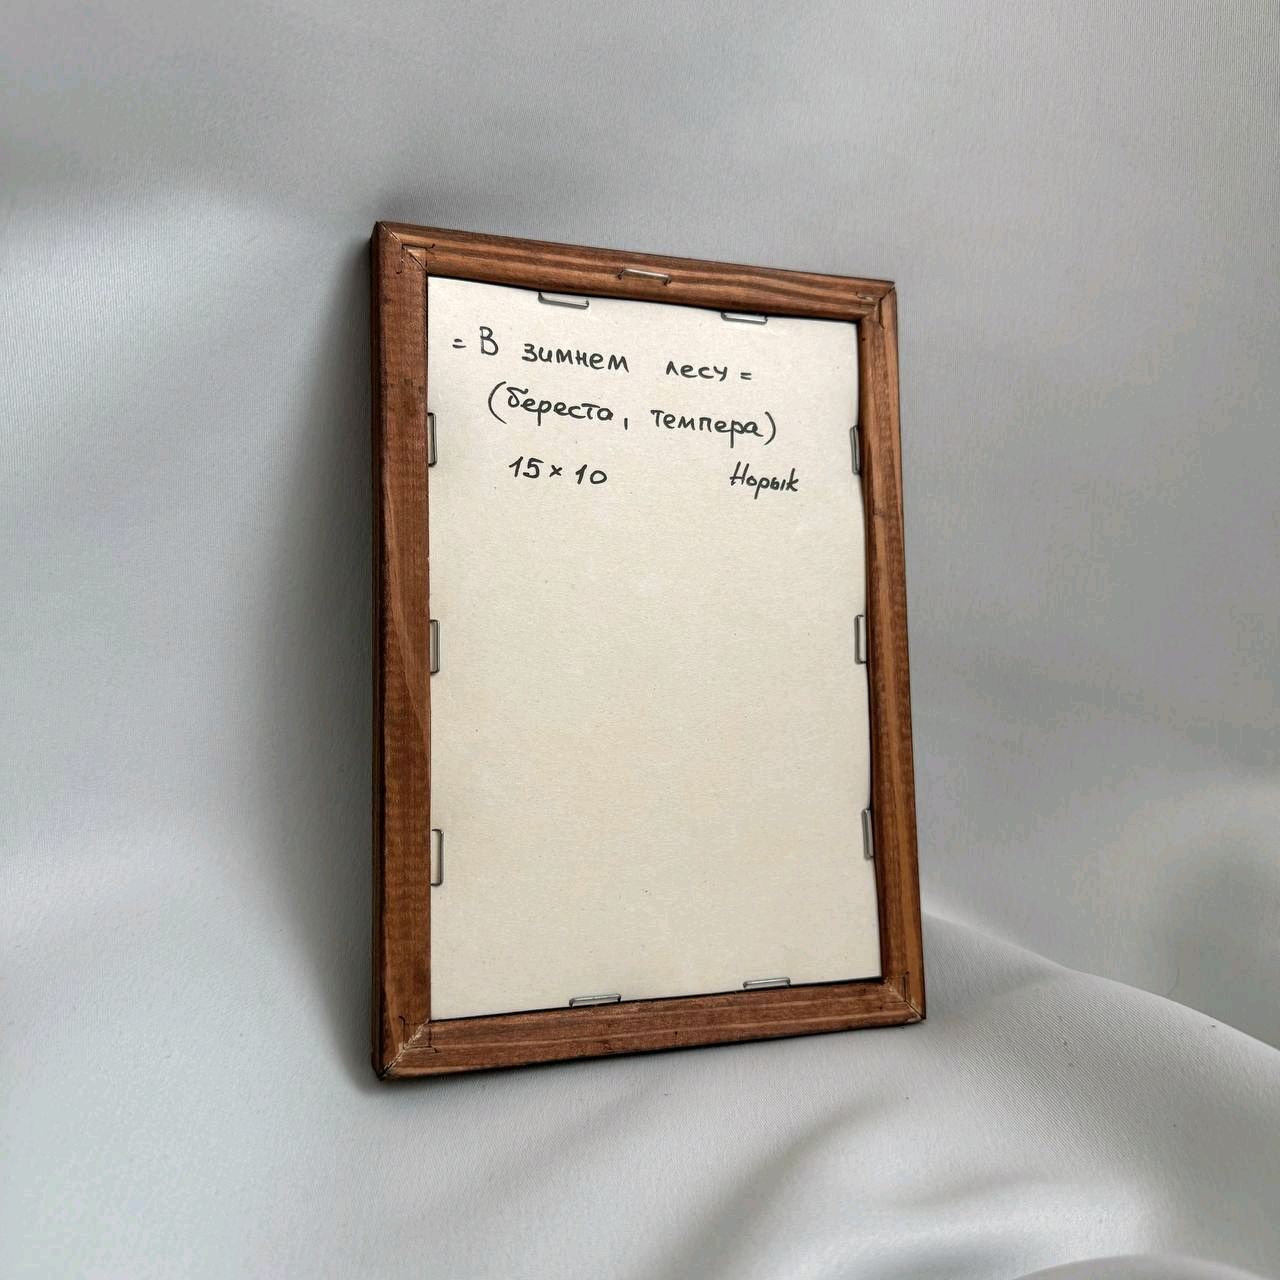 = В зимнем лесу =
(береста, темпера)
15 × 10 Норык